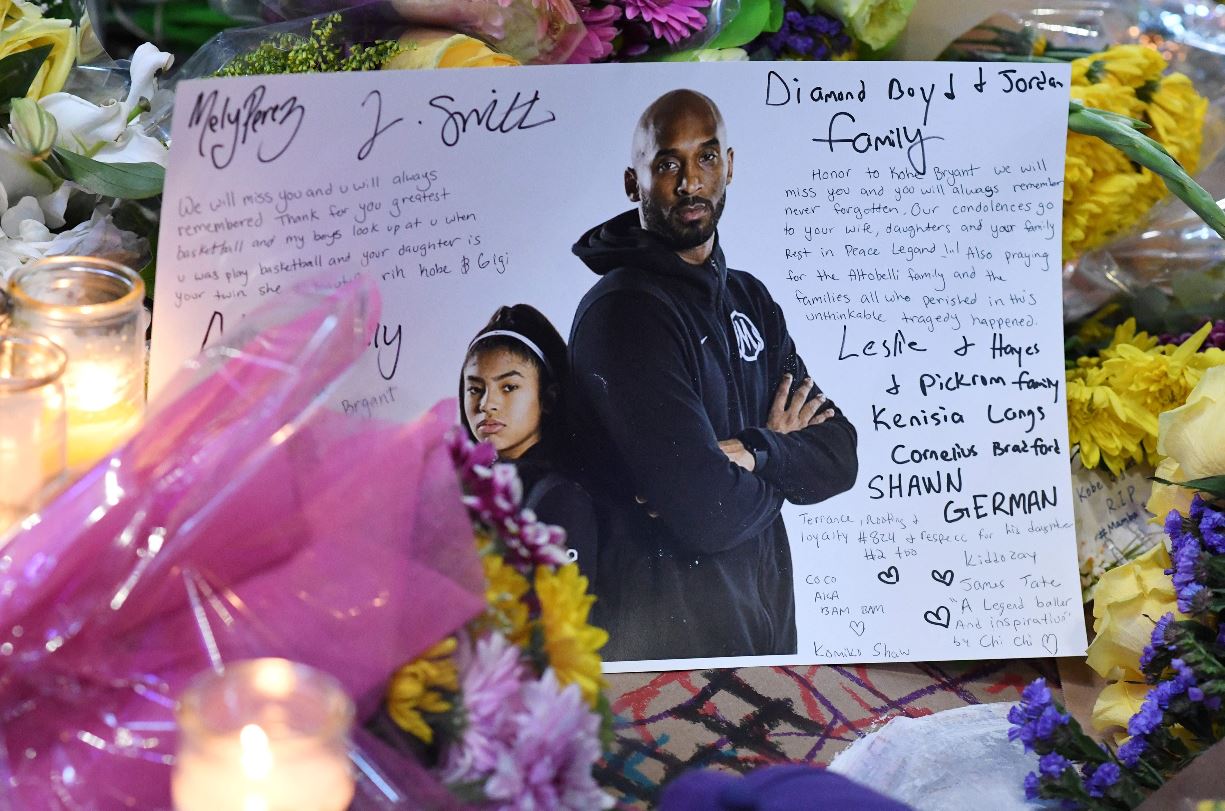 Mely Perez
J. Smith
We will miss you and u will always
remembered Thank for you greatest
basketball and my boys look up at u when
u was play basketball and your daughter is
your twin she rih Kobe $ Gigi
Bryant
Diamond Boyd & Jordan
family
Honor to Kobe Bryant we will
miss you and you will always remember
never forgotten. Our condolences go
to your wife, daughters and your family
Rest in Peace Legand !..! Also praying
for the Altobelli family and the
families all who perished in this
unthinkable tragedy happened.
Leslie & Hayes
& Pickrom family
Kenisia Langs
Cornelius Bradford
SHAWN
GERMAN
Terrance,
loyalty #824 & respect for his daughter
#2 too
Kiddozay
COCO
AKA
BAM BAM
James Tate
"A Legend baller
And inspiration"
by Chi Chi
Komiko Shaw
Kobe
R.I.P